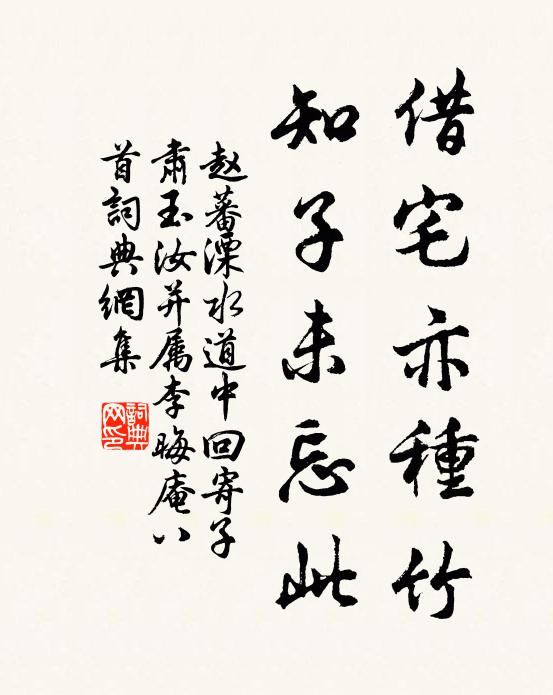 借宅亦種竹
知子未忘此
赵蕃溧水道中回寄子
肃玉汝并属李晦庵八
首詞典網集
詞典
网印